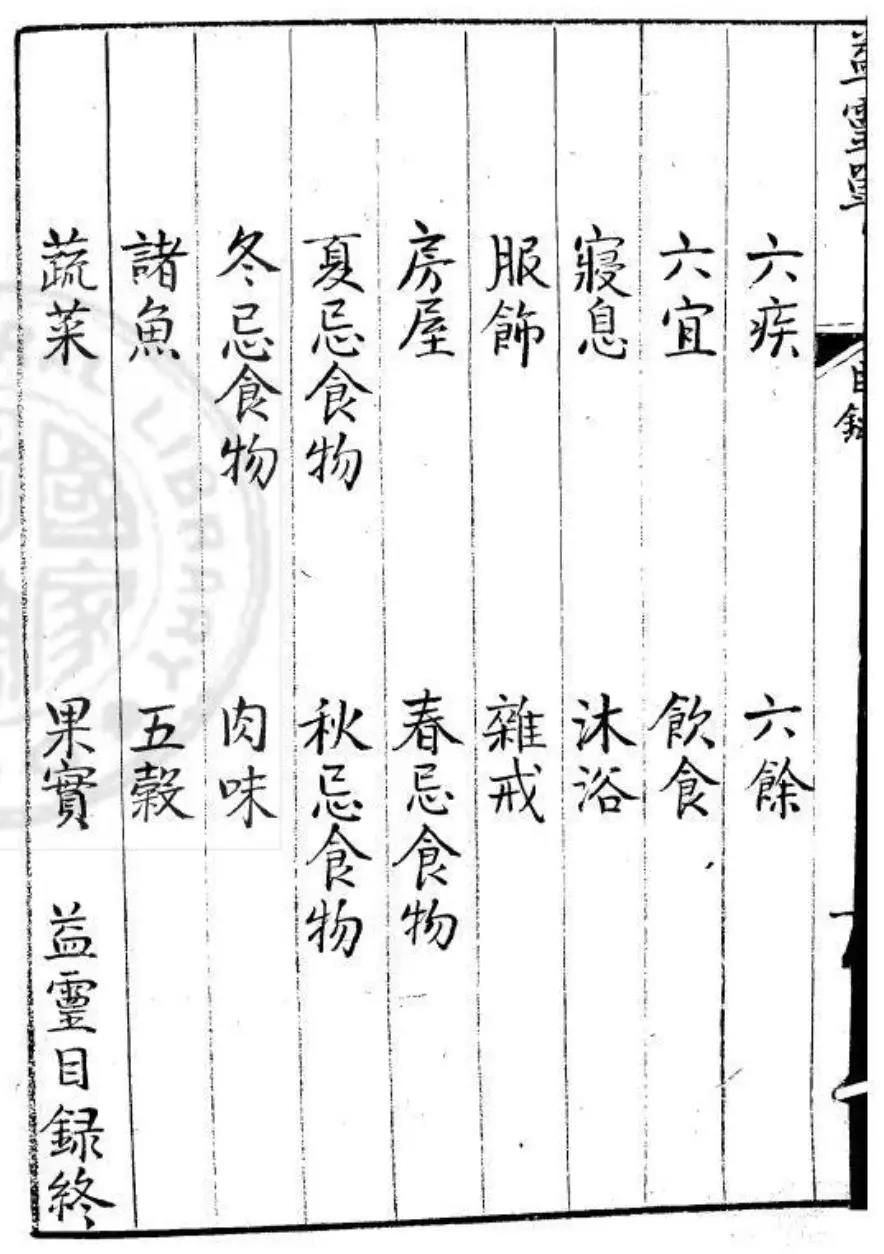 六疾 六餘
六宜 飲食
寢息 沐浴
服飾 雜戒
房屋 春忌食物
夏忌食物 秋忌食物
冬忌食物 肉味
諸魚 五穀
蔬菜 果實 益靈目録終
益靈
目録
LIBRARY
國家